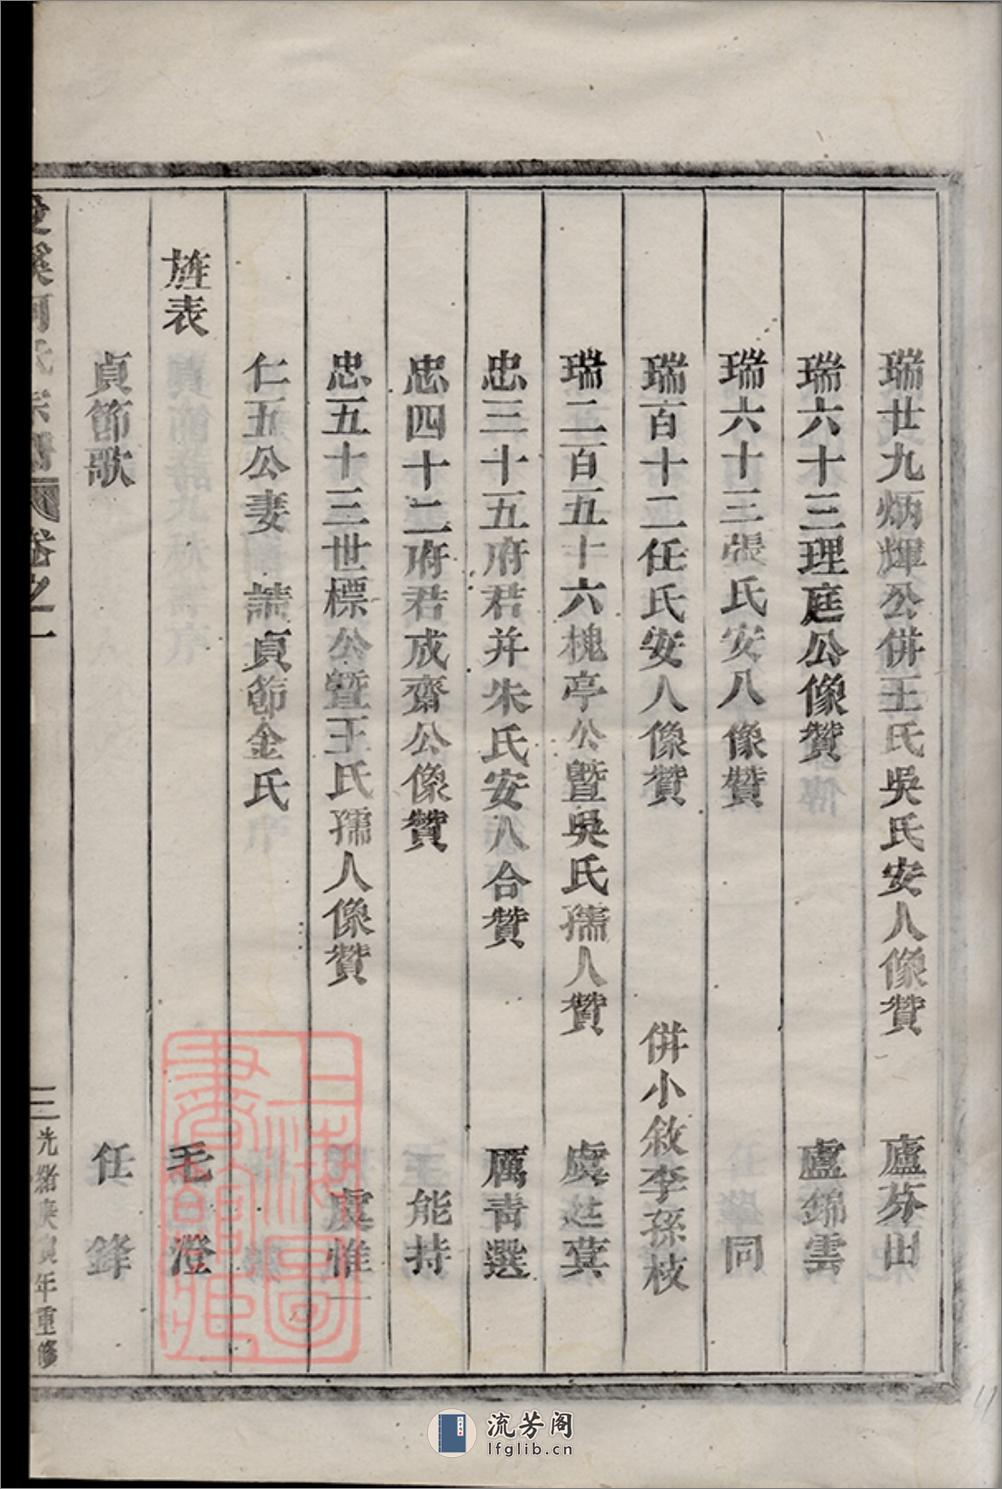 瑞廿九炳輝公併王氏吳氏安人像贊 盧芬田
瑞六十三理庭公像贊 盧錦雲
瑞六十三張氏安人像贊 同
瑞百十二任氏安人像贊 併小敘李孫枝
瑞二百五十六槐亭公暨吳氏孺人贊 虞廷蓂
忠三十五府君并朱氏安人合贊 厲青選
忠四十二府君成齋公像贊 能持
忠五十三世標公暨王氏孺人像贊 虞惟一
仁五公妻 諸貞節金氏
旌表 毛澄
貞節歌 任鋒
溪河氏宗譜 卷之一 三 光緒庚寅年重修
上海圖書館藏
流芳阁
lfglib.cn